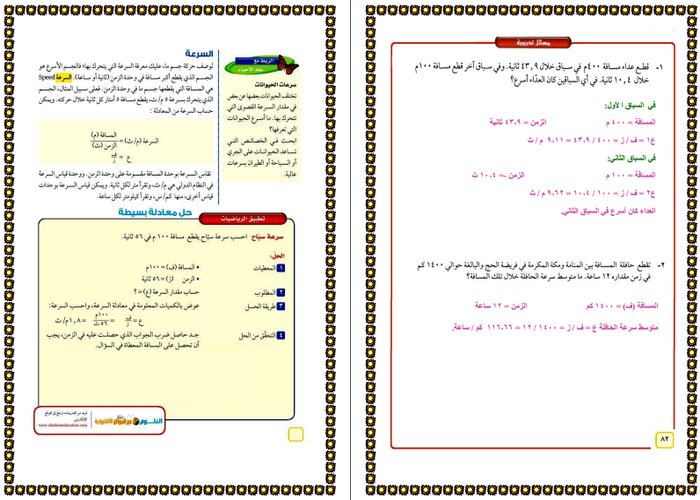 السرعة
لوصف حركة جسم ما، عليك معرفة السرعة التي يتحرك بها؛ فالجسم الأسرع هو
الجسم الذي يقطع أكبر مسافة في وحدة الزمن (ثانية أو ساعة). السرعة Speed
هي المسافة التي يقطعها جسم ما في وحدة الزمن. فعلى سبيل المثال، الجسم
الذي يتحرك بسرعة ٥ م/ث، يقطع مسافة ٥ أمتار كل ثانية خلال حركته. ويمكن
حساب السرعة من المعادلة:
السرعة (م/ث) = المسافة (م) / الزمن (ث)
ع = ف / ز
تقاس السرعة بوحدة المسافة مقسومة على وحدة الزمن. ووحدة قياس السرعة
في النظام الدولي هي م/ث، وتقرأ متر لكل ثانية. ويمكن قياس السرعة بوحدات
قياس أخرى، منها: كم/س، وتقرأ كيلومتر لكل ساعة.
الربط مع
علم الأحياء
سرعات الحيوانات
تختلف الحيوانات بعضها عن بعض
في مقدار السرعة القصوى التي
تتحرك بها. ما أسرع الحيوانات
التي تعرفها؟
ابحث في الخصائص التي
تساعد الحيوانات على الجري
أو السباحة أو الطيران بسرعات
عالية.
تطبيق الرياضيات
حل معادلة بسيطة
سرعة سبّاح احسب سرعة سبّاح يقطع مسافة ١٠٠ م في ٥٦ ثانية.
الحل:
١ المعطيات
• المسافة (ف) = ١٠٠م
• الزمن (ز) = ٥٦ ثانية
٢ المطلوب
حساب مقدار السرعة (ع) = ؟
٣ طريقة الحل
عوض بالكميات المعلومة في معادلة السرعة، واحسب السرعة:
ع = ف / ز = ١٠٠م / ٥٦ ث = ١,٨ م/ث
٤ التحقق من الحل
جد حاصل ضرب الجواب الذي حصلت عليه في الزمن، يجب
أن تحصل على المسافة المعطاة في السؤال.
www.obeikaneducation.com
مسائل تدريبية
١- قطع عداء مسافة ٤٠٠م في سباق خلال ٤٣,٩ ثانية. وفي سباق آخر قطع مسافة ١٠٠م
خلال ١٠,٤ ثانية. في أي السباقين كان العدّاء أسرع؟
في السباق الأول:
المسافة = ٤٠٠ م الزمن = ٤٣،٩ ثانية
ع١ = ف / ز = ٤٠٠ / ٤٣،٩ = ٩،١١ م / ث
في السباق الثاني:
المسافة = ١٠٠ م الزمن = ١٠،٤ ث
ع٢ = ف / ز = ١٠٠ / ١٠،٤ = ٩،٦٢ م / ث
العداء كان أسرع في السباق الثاني.
٢- تقطع حافلة المسافة بين المنامة ومكة المكرمة في فريضة الحج والبالغة حوالي ١٤٠٠ كم
في زمن مقداره ١٢ ساعة. ما متوسط سرعة الحافلة خلال تلك المسافة؟
المسافة (ف) = ١٤٠٠ كم الزمن = ١٢ ساعة
متوسط سرعة الحافلة ع = ف / ز = ١٤٠٠ / ١٢ = ١١٦،٦٦ كم / ساعة.
٨٢